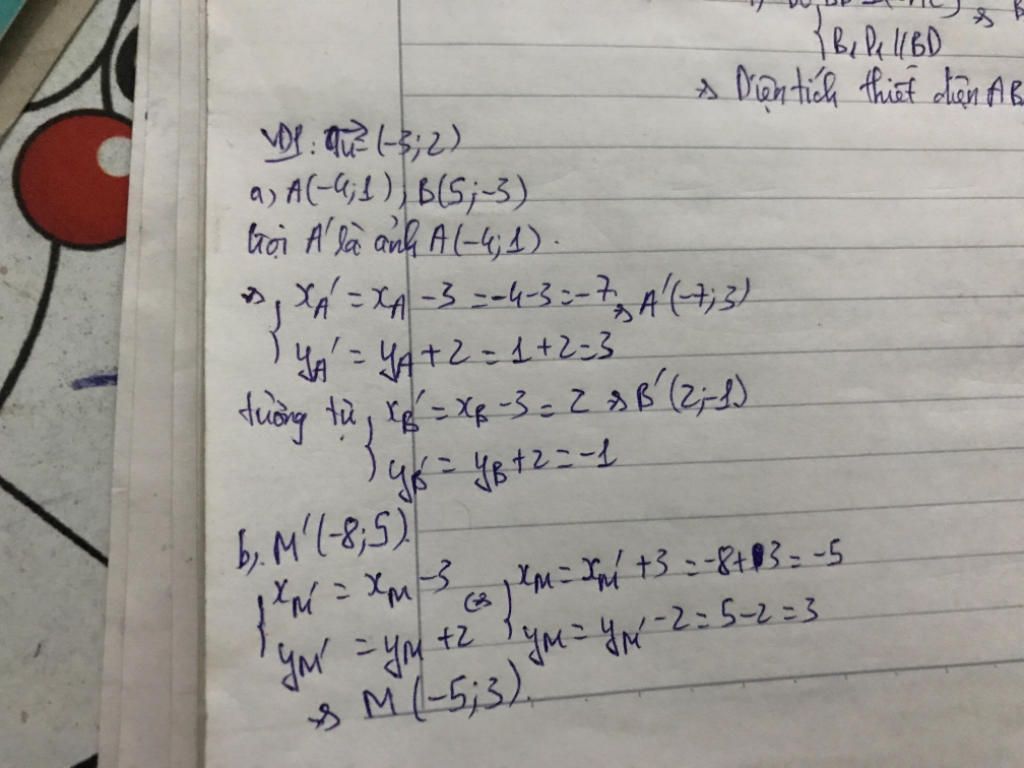 B₁D₁ // BD
⇒ Diện tích thiết diện AB
VD1: u⃗ = (-3;2)
a, A(-4;1), B(5;-3)
Gọi A' là ảnh A(-4;1).
⇒ { x_A' = x_A - 3 = -4-3 = -7 ⇒ A'(-7;3)
y_A' = y_A + 2 = 1+2 = 3
tường tự { x_B' = x_B - 3 = 2 ⇒ B'(2;-1)
y_B' = y_B + 2 = -1
b, M'(-8;5).
{ x_M' = x_M - 3 ⇔ { x_M = x_M' + 3 = -8+3 = -5
y_M' = y_M + 2 y_M = y_M' - 2 = 5-2 = 3
⇒ M(-5;3).